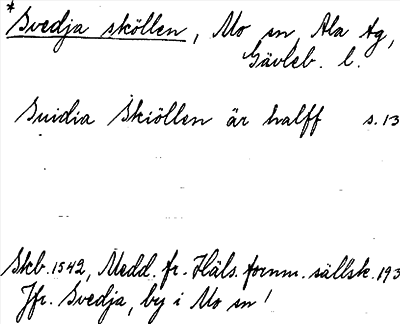 * Svedja sköllen, Mo sn, Ala tg,
Gävleb. l.
Suidia Skiöllen är halff s. 13
Skb. 1542, Medd. fr. Häls. fornm. sällsk. 193
Jfr. Svedja, by i Mo sn!